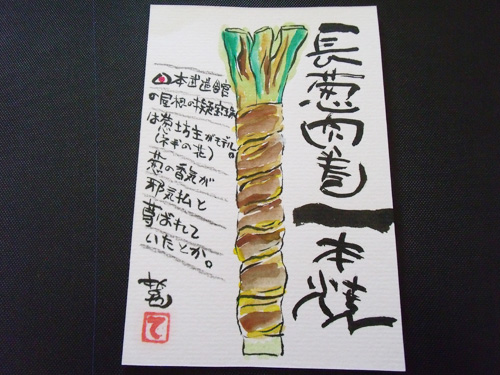 長葱肉巻一本焼
日本武道館
の屋根の擬宝珠
は葱坊主がモデル。
(ネギの花)
葱の香気が
邪気払と
尊ばれて
いたとか。
て